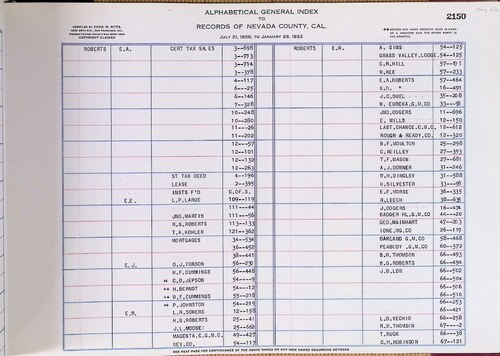 ALPHABETICAL GENERAL INDEX
TO
RECORDS OF NEVADA COUNTY, CAL.
JULY 21, 1856, TO JANUARY 28, 1922
2150
COMPILED BY CHAS. W. KITTS,
COPYRIGHT CLAIMED
ROBERTS E.A. CERT TAX SALES 3—698
3—773
3—714
3—378
4—117
6—25
6—146
7—328
10—248
10—280
11—26
11—202
12—57
12—101
12—132
12—263
ST TAX DEED 4—196
LEASE 2—395
INSTS F'D E.OF.S.
E.E. L.P. LARUE 109—119
111—44
JNO. MARTIN 111—56
H.G. ROBERTS 113—133
T.A. KOHLER 121—362
MORTGAGES 34—534
36—452
38—441
E.J. O.J. TORSON 56—230
W.F. CUMMINGS 56—448
** C.D. JEPSON 54—9
** H. BERNDT 54—12
** W.F. CUMMINGS 55—218
** P. JOHNSTON 54—219
E.M. L.R. SOMERS 12—158
H.G. ROBERTS 25—41
J.L. MOOSER 25—562
MAGENTA, C.G.M.C. 49—427
NEV. CO. 54—117
ROBERTS E.W. A. SIMS 54—125
GRASS VALLEY, LODGE 54—125
G.R. HILL 57—81
W. KEE 57—233
E.A. ROBERTS 57—464
S.D. " 16—491
J.C. DUEL 35—208
N. EUREKA, G.M.CO 33—98
JNO. ODGERS 11—696
E. MILLS 12—150
LAST, CHANCE, G.M.C. 12—612
ROUGH & READY, CO. 12—320
B.F. MOULTON 25—298
C. REILLEY 27—393
T.F. MASON 27—681
A.J. DORNER 31—246
W.H. DINGLEY 31—588
H. SILVESTER 33—98
E.F. HORSE 36—335
H. LEECH 38—635
J. ODGERS 16—474
BADGER HL, G.M.CO 44—20
GEO. MAINHART 47—203
IONE, MG. CO 26—119
OAKLAND G.M.CO 58—468
PEABODY, G.M.CO 60—372
B.R. THOMSON 66—493
H.G. ROBERTS 66—494
J.B. LOR 66—502
66—504
66—506
66—510
66—253
66—421
L.D. VECHIO 66—258
R.M. THOMSON 67—2
T. RUCK 68—38
C.H. ROBINSON 67—121
SEE NEXT PAGE FOR CONTINUANCE OF THE ABOVE NAMES OR ANY NEW NAMES OCCURRING BETWEEN